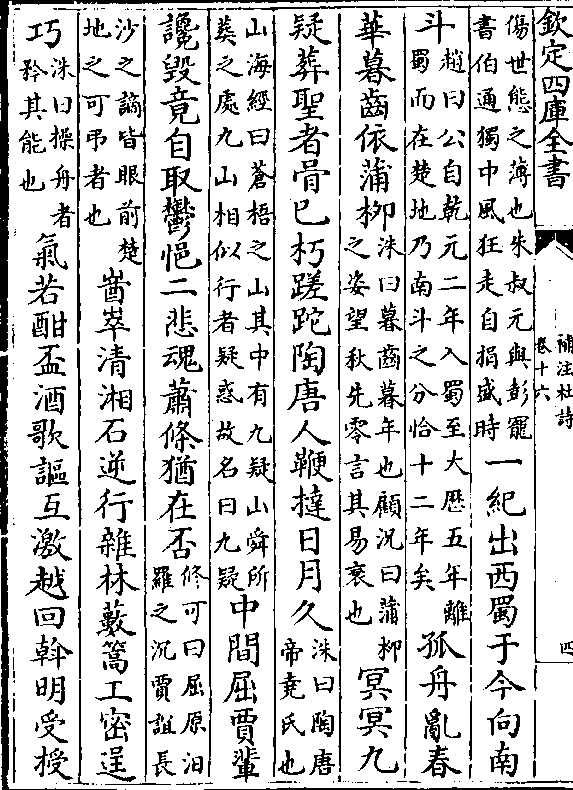 欽定四庫全書
補注杜詩
卷十六
四
傷世態之薄也朱叔元與彭寵
書伯通獨中風狂走自捐盛時
一紀出西蜀于今向南
斗
趙曰公自乾元二年入蜀至大厯五年離
蜀而在楚地乃南斗之分恰十二年矣
孤舟亂春
華暮齒依蒲柳
洙曰暮齒暮年也顧況曰蒲柳
之姿望秋先零言其易衰也
冥冥九
疑葬聖者骨已朽蹉跎陶唐人鞭撻日月久
洙曰陶唐
帝堯氏也
山海經曰蒼梧之山其中有九疑山舜所
葬之處九山相似行者疑惑故名曰九疑
中間屈賈輩
讒毀竟自取鬱悒二悲魂蕭條猶在否
修可曰屈原汨
羅之沉賈誼長
沙之謫皆眼前楚
地之可弔者也
崷崒清湘石逆行雜林藪篙工密逞
巧
洙曰操舟者
矜其能也
氣若酣盃酒歌謳互激越回斡明受授